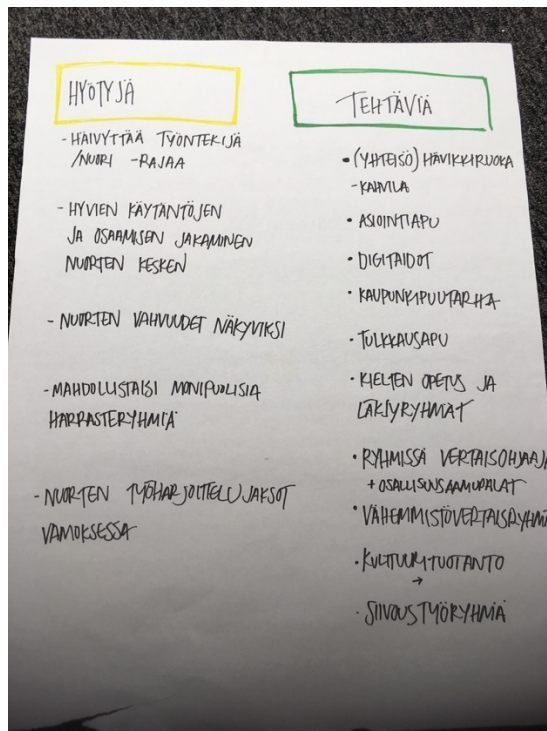 HYÖTYJÄ
- HÄIVYTTÄÄ TYÖNTEKIJÄ
/NUORI -RAJAA
- HYVIEN KÄYTÄNTÖJEN
JA OSAAMISEN JAKAMINEN
NUORTEN KESKEN
- NUORTEN VAHVUUDET NÄKYVIKSI
- MAHDOLLISTAISI MONIPUOLISIA
HARRASTERYHMIÄ
- NUORTEN TYÖHARJOITTELUJAKSOT
VAMOKSESSA
TEHTÄVIÄ
• (YHTEISÖ) HÄVIKKIRUOKA
- KAHVILA
• ASIOINTIAPU
• DIGITAIDOT
• KAUPUNKIPUUTARHA
• TULKKAUSAPU
• KIELTEN OPETUS JA
LÄKSYRYHMÄT
• RYHMISSÄ VERTAISOHJAAJA
+ OSALLISUUSAAMUPALAT
• VÄHEMMISTÖVERTAISRYHMÄ
• KULTTUURITUOTANTO
→
• SIIVOUSTYÖRYHMIÄ